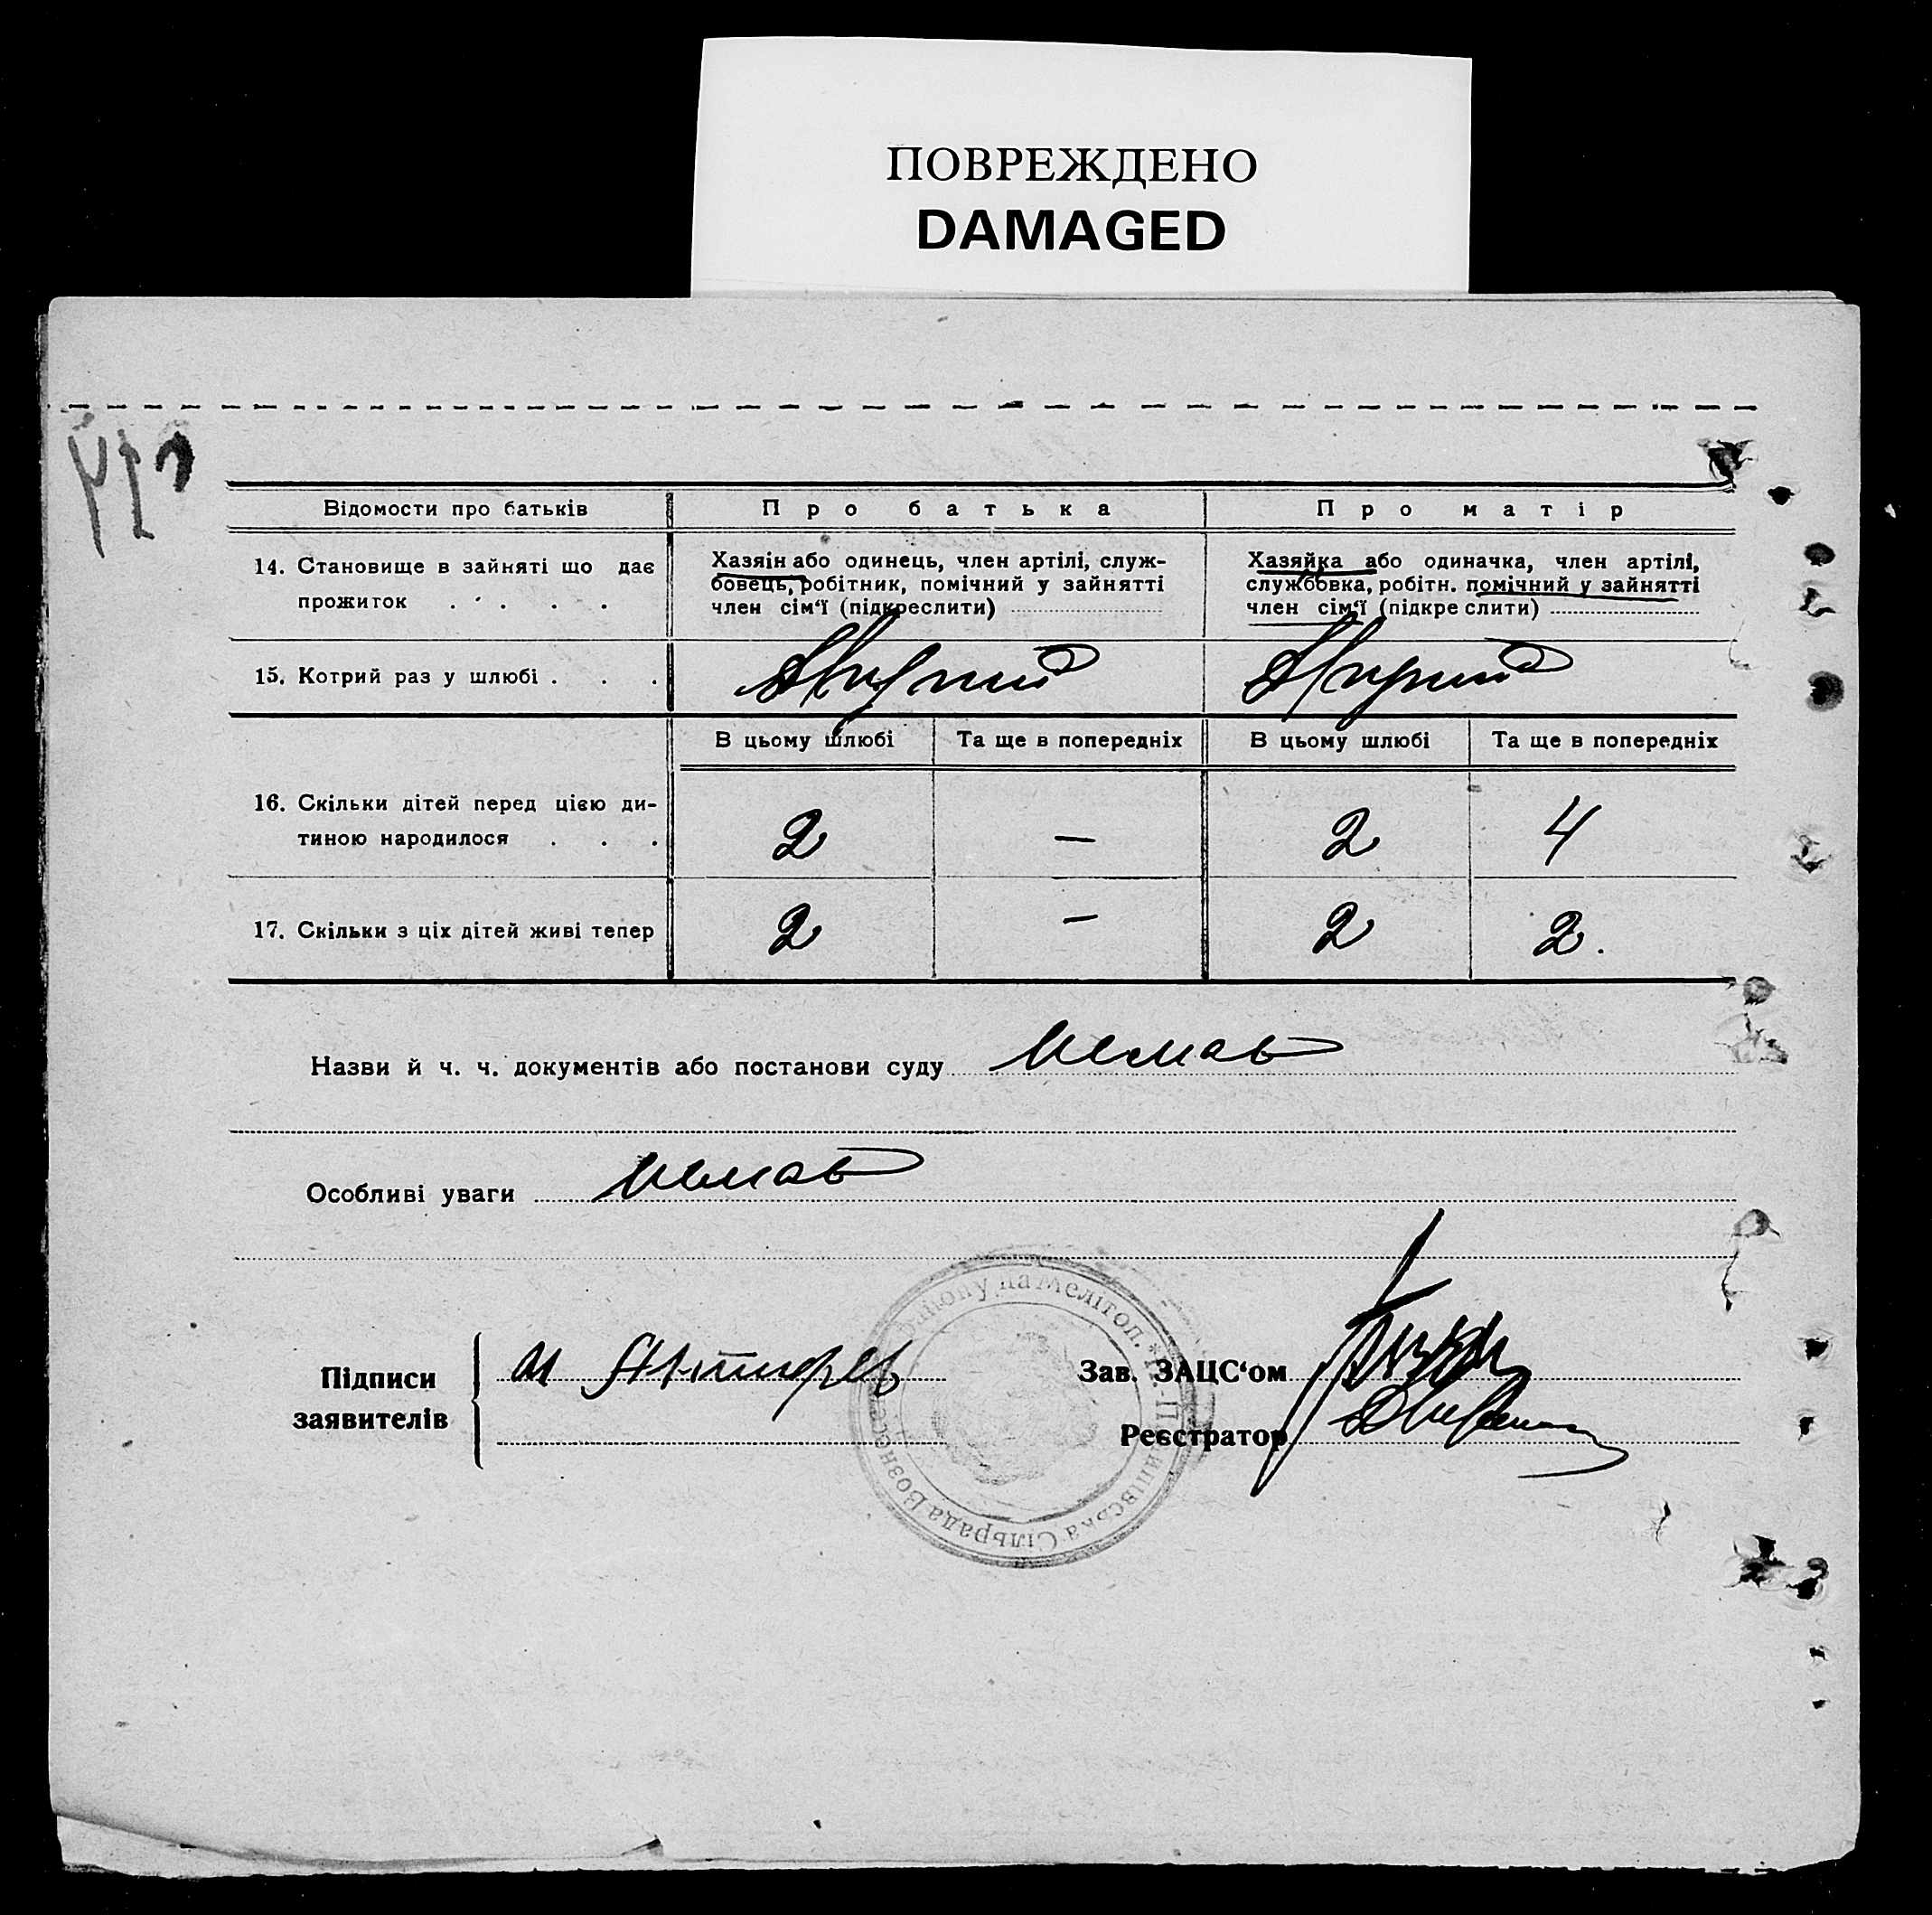 ПОВРЕЖДЕНО
DAMAGED
Відомости про батьків
Про батька
Про матір
14. Становище в зайняті що дає
прожиток . . . .
Хазяін або одинець, член артілі, служ-
бовець, робітник, помічний у зайнятті
член сім'ї (підкреслити)
Хазяйка або одиначка, член артілі,
службовка, робітн. помічний у зайнятті
член сім'ї (підкре слити)
15. Котрий раз у шлюбі . . .
В цьому шлюбі
Та ще в попередніх
В цьому шлюбі
Та ще в попередніх
16. Скільки дітей перед цією ди-
тиною народилося . . .
2
—
2
4
17. Скільки з ціх дітей живі тепер
2
—
2
2.
Назви й ч. ч. документів або постанови суду немає
Особливі уваги немає
Підписи
заявителів
Зав. ЗАЦС'ом
Реєстратор
Сільрада
на Мелітоп.